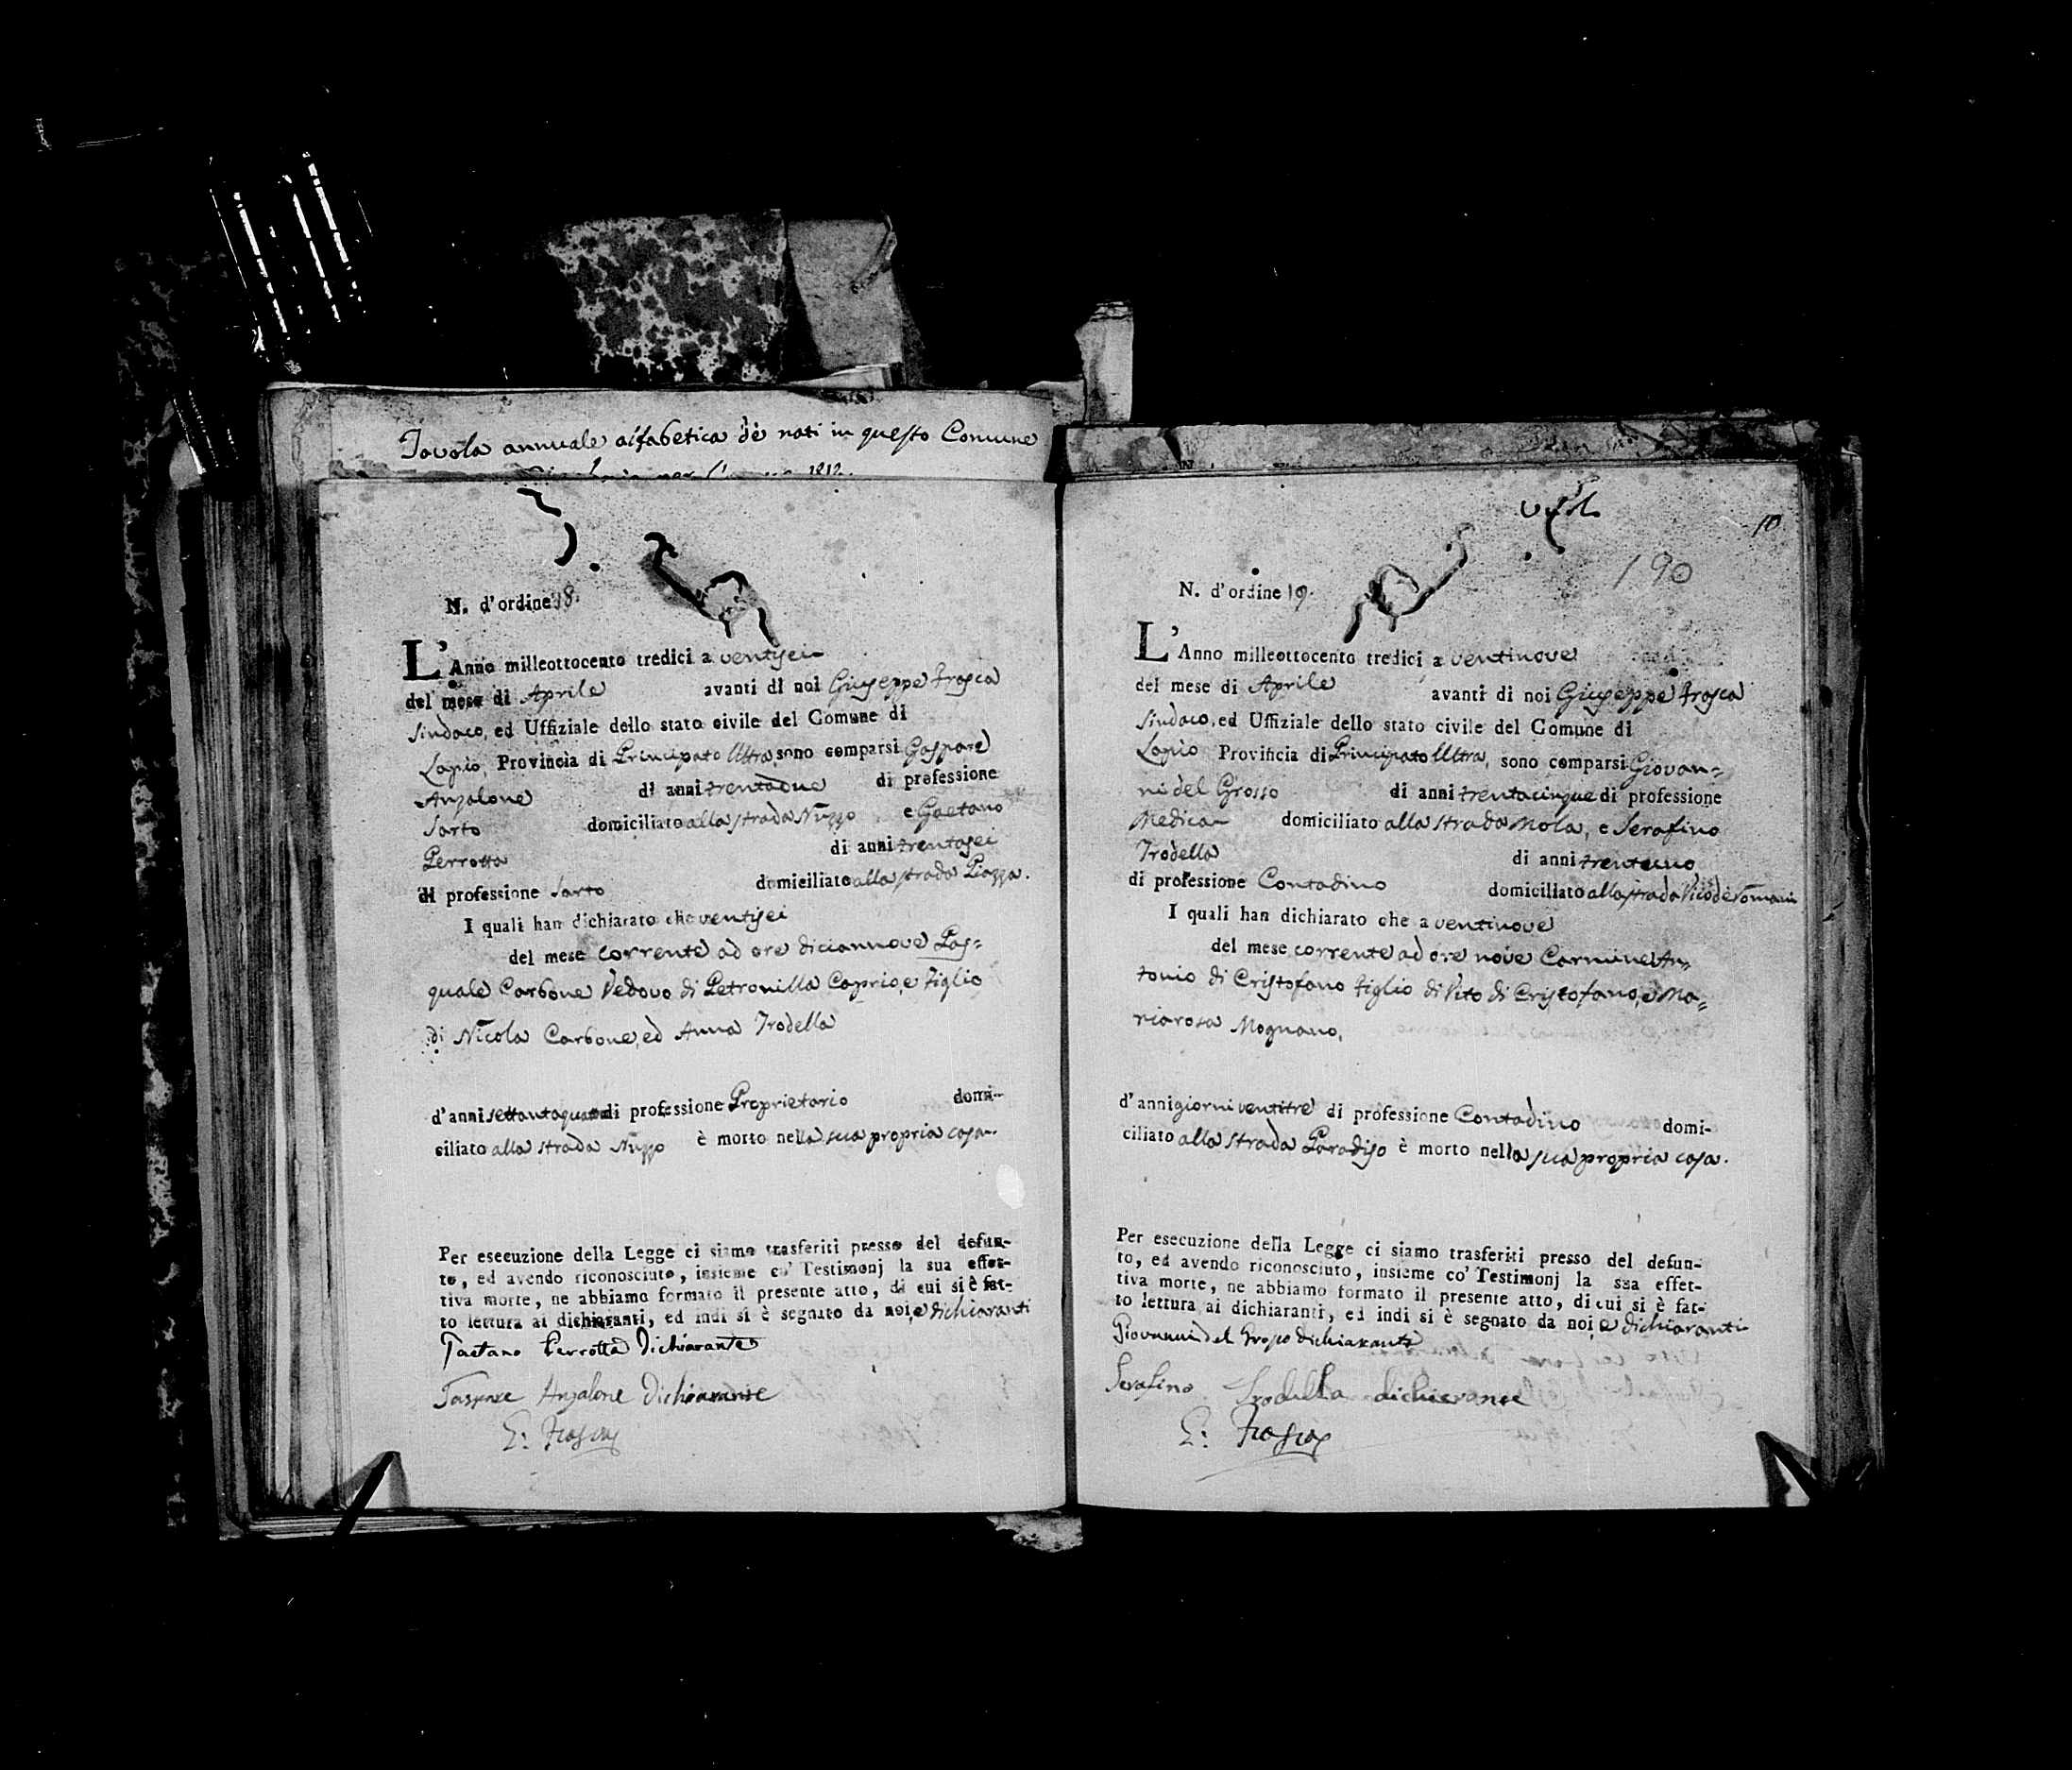 Tavola annuale alfabetica de' nati in questo Comune
1812.
N. d'ordine 18.
L'Anno milleottocento tredici a ventisei
del mese di Aprile avanti di noi Giuseppe Frosca
Sindaco, ed Uffiziale dello stato civile del Comune di
Lapio, Provincia di Principato Ultra, sono comparsi Gaspare
Anzalone di anni trentadue di professione
Sarto domiciliato alla strada Nuzzo, e Gaetano
Perrotta di anni trentasei
di professione Sarto domiciliato alla strada Piazza.
I quali han dichiarato che a ventisei
del mese corrente ad ore diciannove Pas=
quale Carbone Vedovo di Petronilla Caprio, e figlio
di Nicola Carbone, ed Anna Trodella
d'anni settantaquattro di professione Proprietario domi-
ciliato alla strada Nuzzo è morto nella sua propria casa.
Per esecuzione della Legge ci siamo trasferiti presso del defun-
to, ed avendo riconosciuto, insieme co' Testimonj la sua effet-
tiva morte, ne abbiamo formato il presente atto, di cui si è fat-
to lettura ai dichiaranti, ed indi si è segnato da noi, e dichiaranti
Gaetano Perrotta Dichiarante
Gaspare Anzalone Dichiarante
G: Frosca
10
190
N. d'ordine 19.
L'Anno milleottocento tredici a ventinove
del mese di Aprile avanti di noi Giuseppe Frosca
Sindaco, ed Uffiziale dello stato civile del Comune di
Lapio Provincia di Principato Ultra, sono comparsi Giovan=
ni del Grosso di anni trentacinque di professione
Medico domiciliato alla strada Mola, e Serafino
Trodella di anni trentuno
di professione Contadino domiciliato alla strada Vico de' Romani
I quali han dichiarato che a ventinove
del mese corrente ad ore nove Carmine An=
tonio di Cristofano figlio di Vito di Cristofano, e Ma=
riarosa Mognano,
d'anni giorni ventitre di professione Contadino domi-
ciliato alla strada Paradiso è morto nella sua propria casa.
Per esecuzione della Legge ci siamo trasferiti presso del defun-
to, ed avendo riconosciuto, insieme co' Testimonj la sua effet-
tiva morte, ne abbiamo formato il presente atto, di cui si è fat-
to lettura ai dichiaranti, ed indi si è segnato da noi, e dichiaranti
Giovanni del Grosso dichiarante
Serafino Trodella dichiarante
G: Frosca